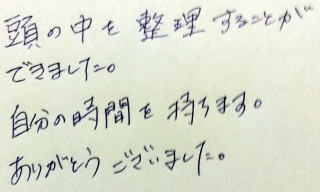 頭の中を整理することが
できました。
自分の時間を持ちます。
ありがとうございました。